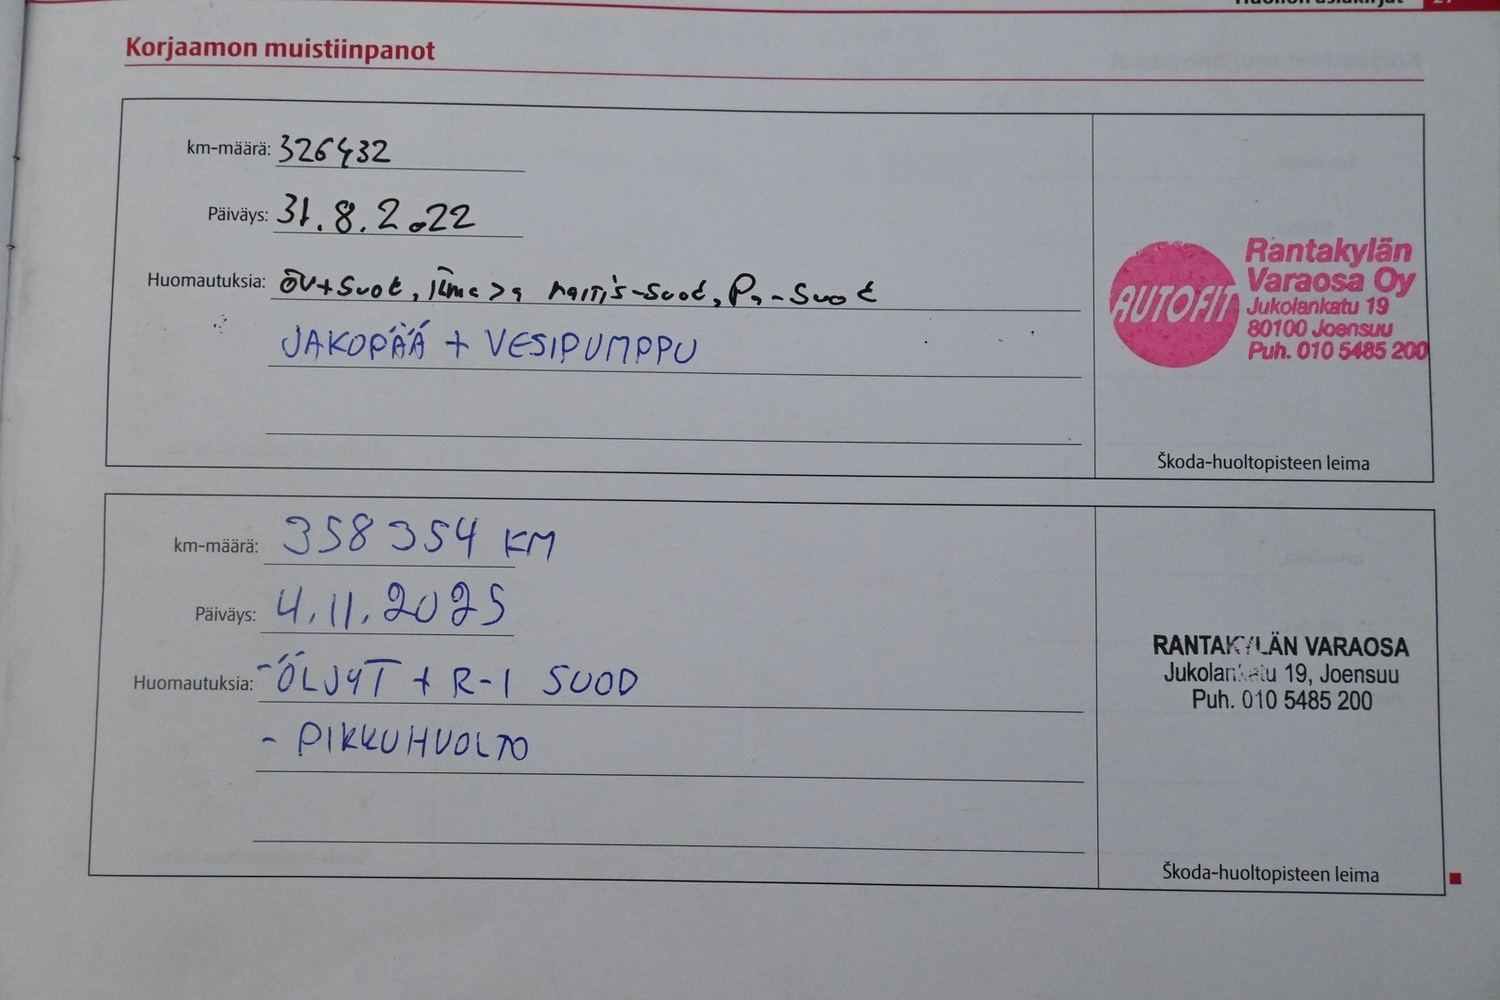 Huollon asiakirjat 27
Korjaamon muistiinpanot
km-määrä: 326432
Päiväys: 31.8.2022
Huomautuksia: ÖV+Suot, ilma ja raitis-Suod, Pa-Suot
JAKOPÄÄ + VESIPUMPPU
AUTOFIT
Rantakylän
Varaosa Oy
Jukolankatu 19
80100 Joensuu
Puh. 010 5485 200
Škoda-huoltopisteen leima
km-määrä: 358354 KM
Päiväys: 4.11.2025
Huomautuksia: -ÖLJYT + R-I SUOD
- PIKKUHUOLTO
RANTAKYLÄN VARAOSA
Jukolankatu 19, Joensuu
Puh. 010 5485 200
Škoda-huoltopisteen leima